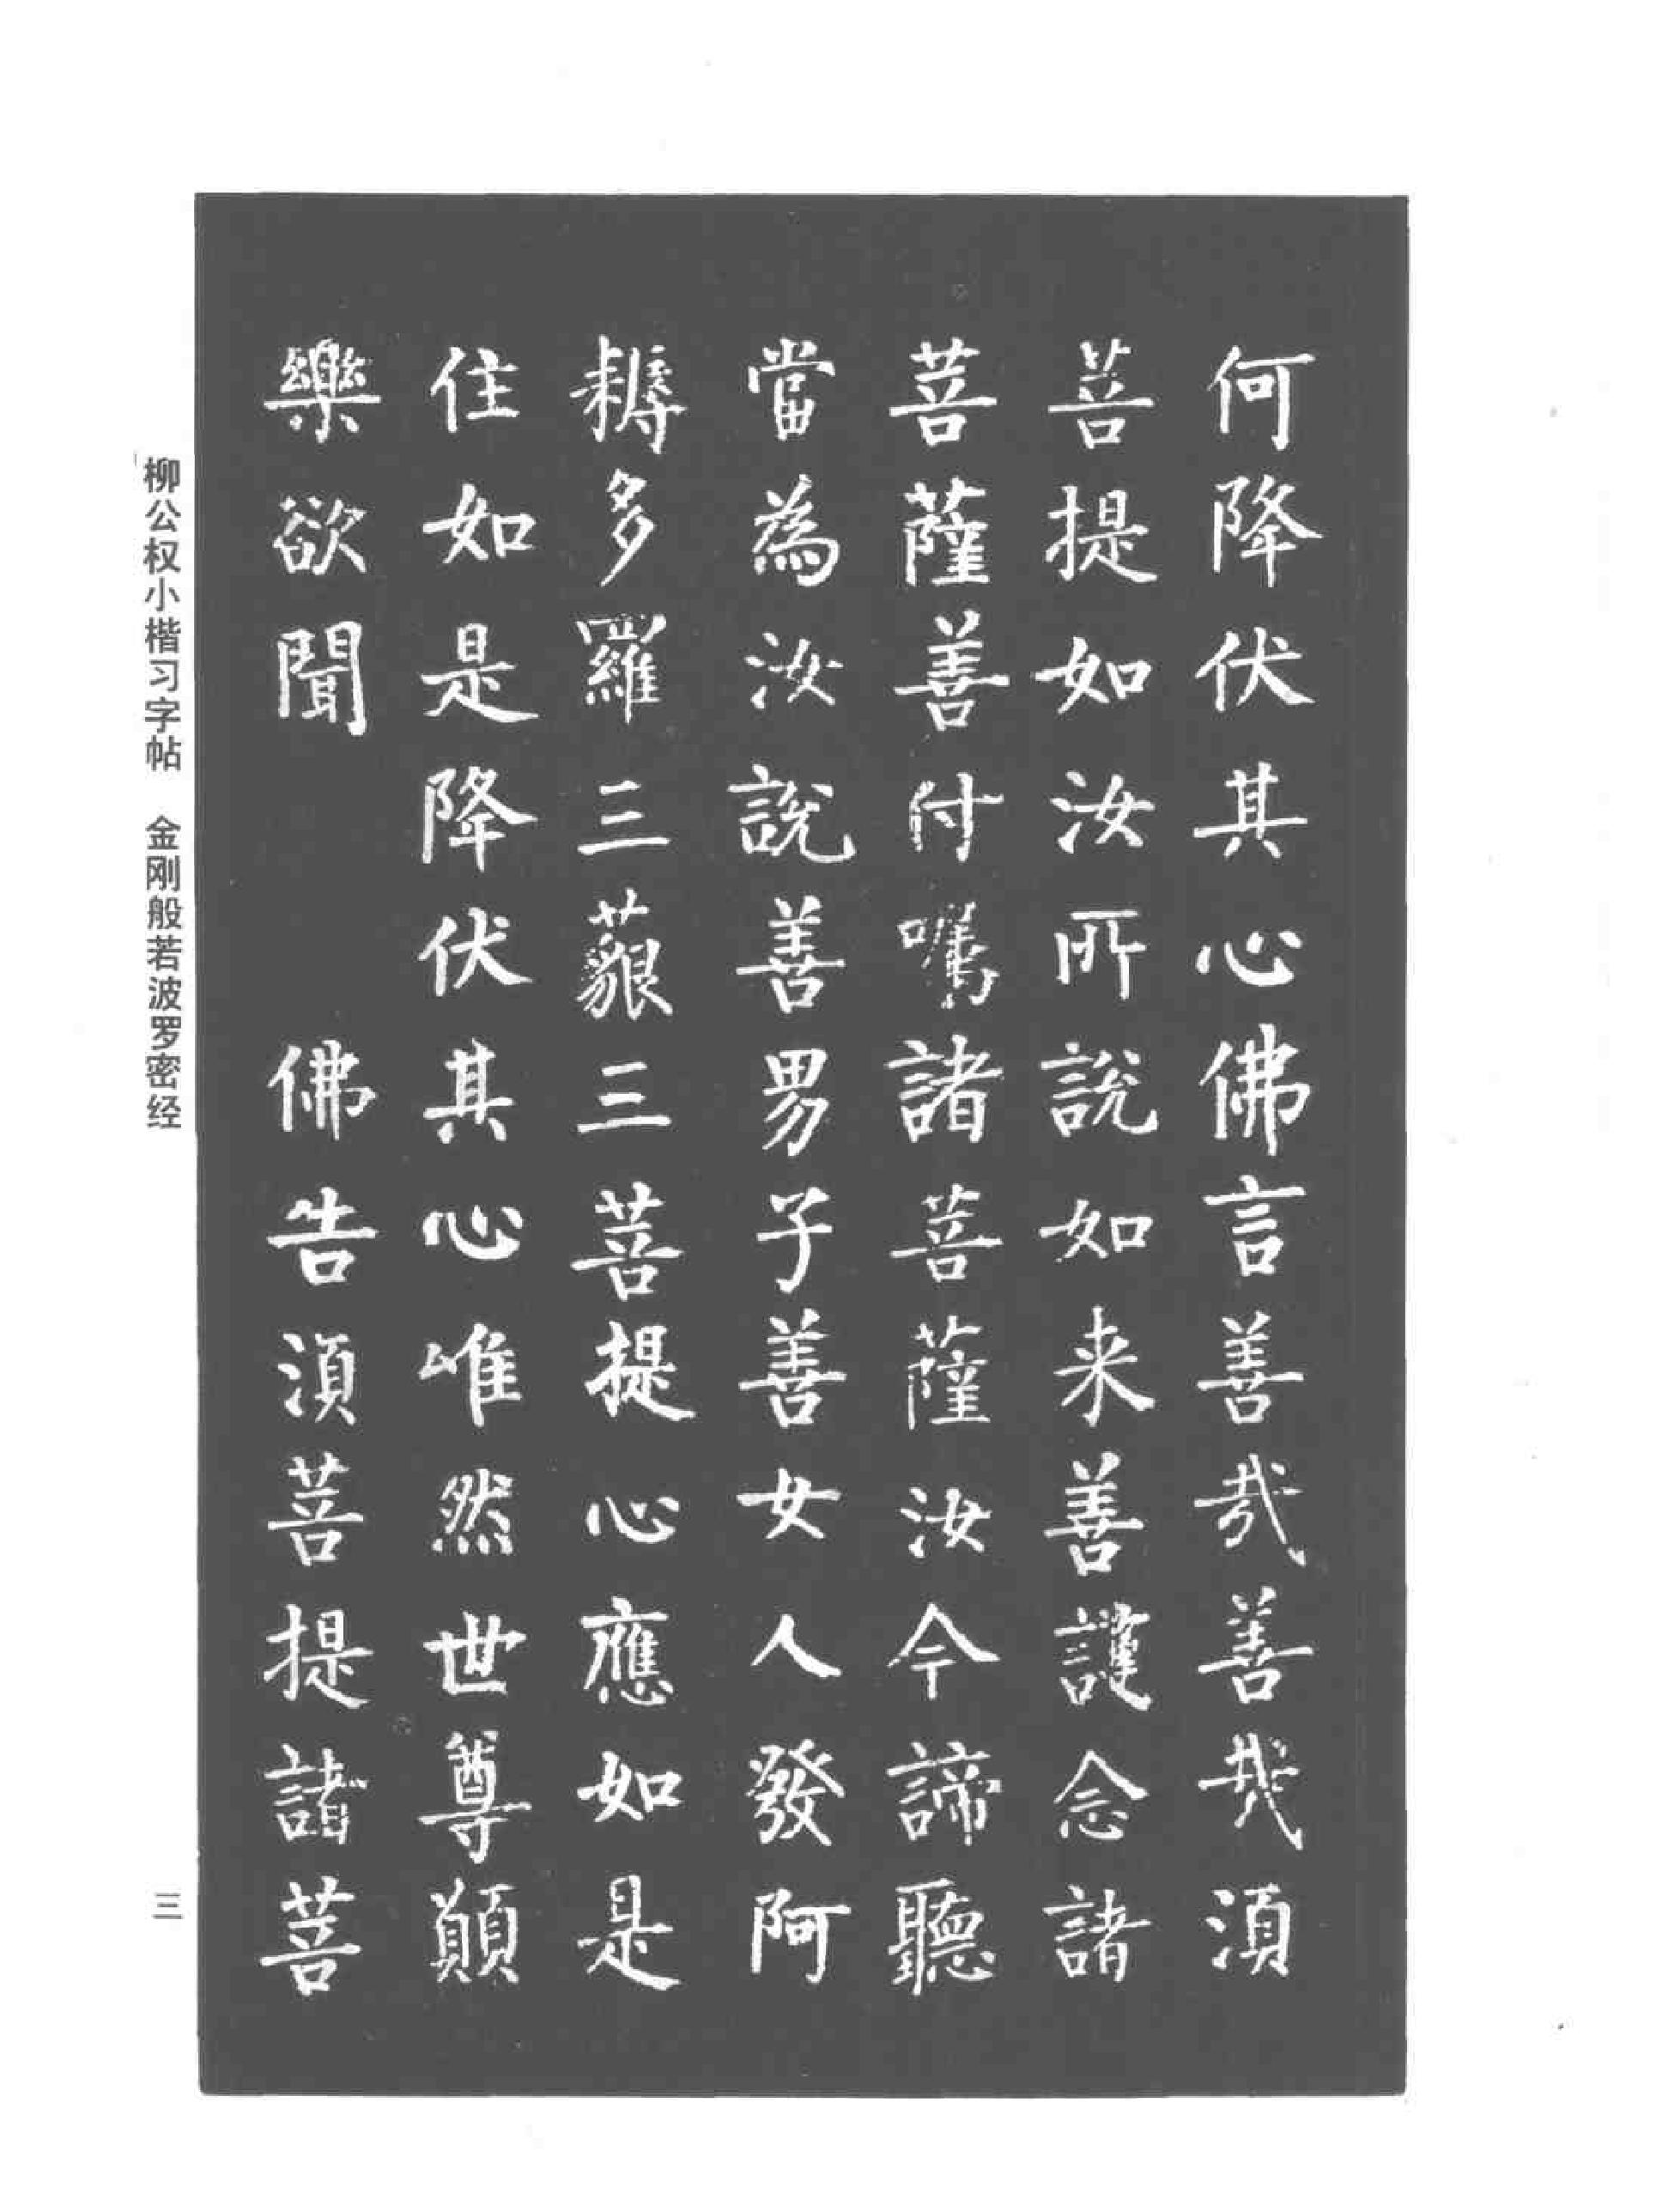 何降伏其心佛言善哉善哉須
菩提如汝所說如来善護念諸
菩薩善付囑諸菩薩汝今諦聽
當為汝說善男子善女人發阿
耨多羅三藐三菩提心應如是
住如是降伏其心唯然世尊願
樂欲聞 佛告須菩提諸菩
柳公权小楷习字帖 金刚般若波罗密经
三